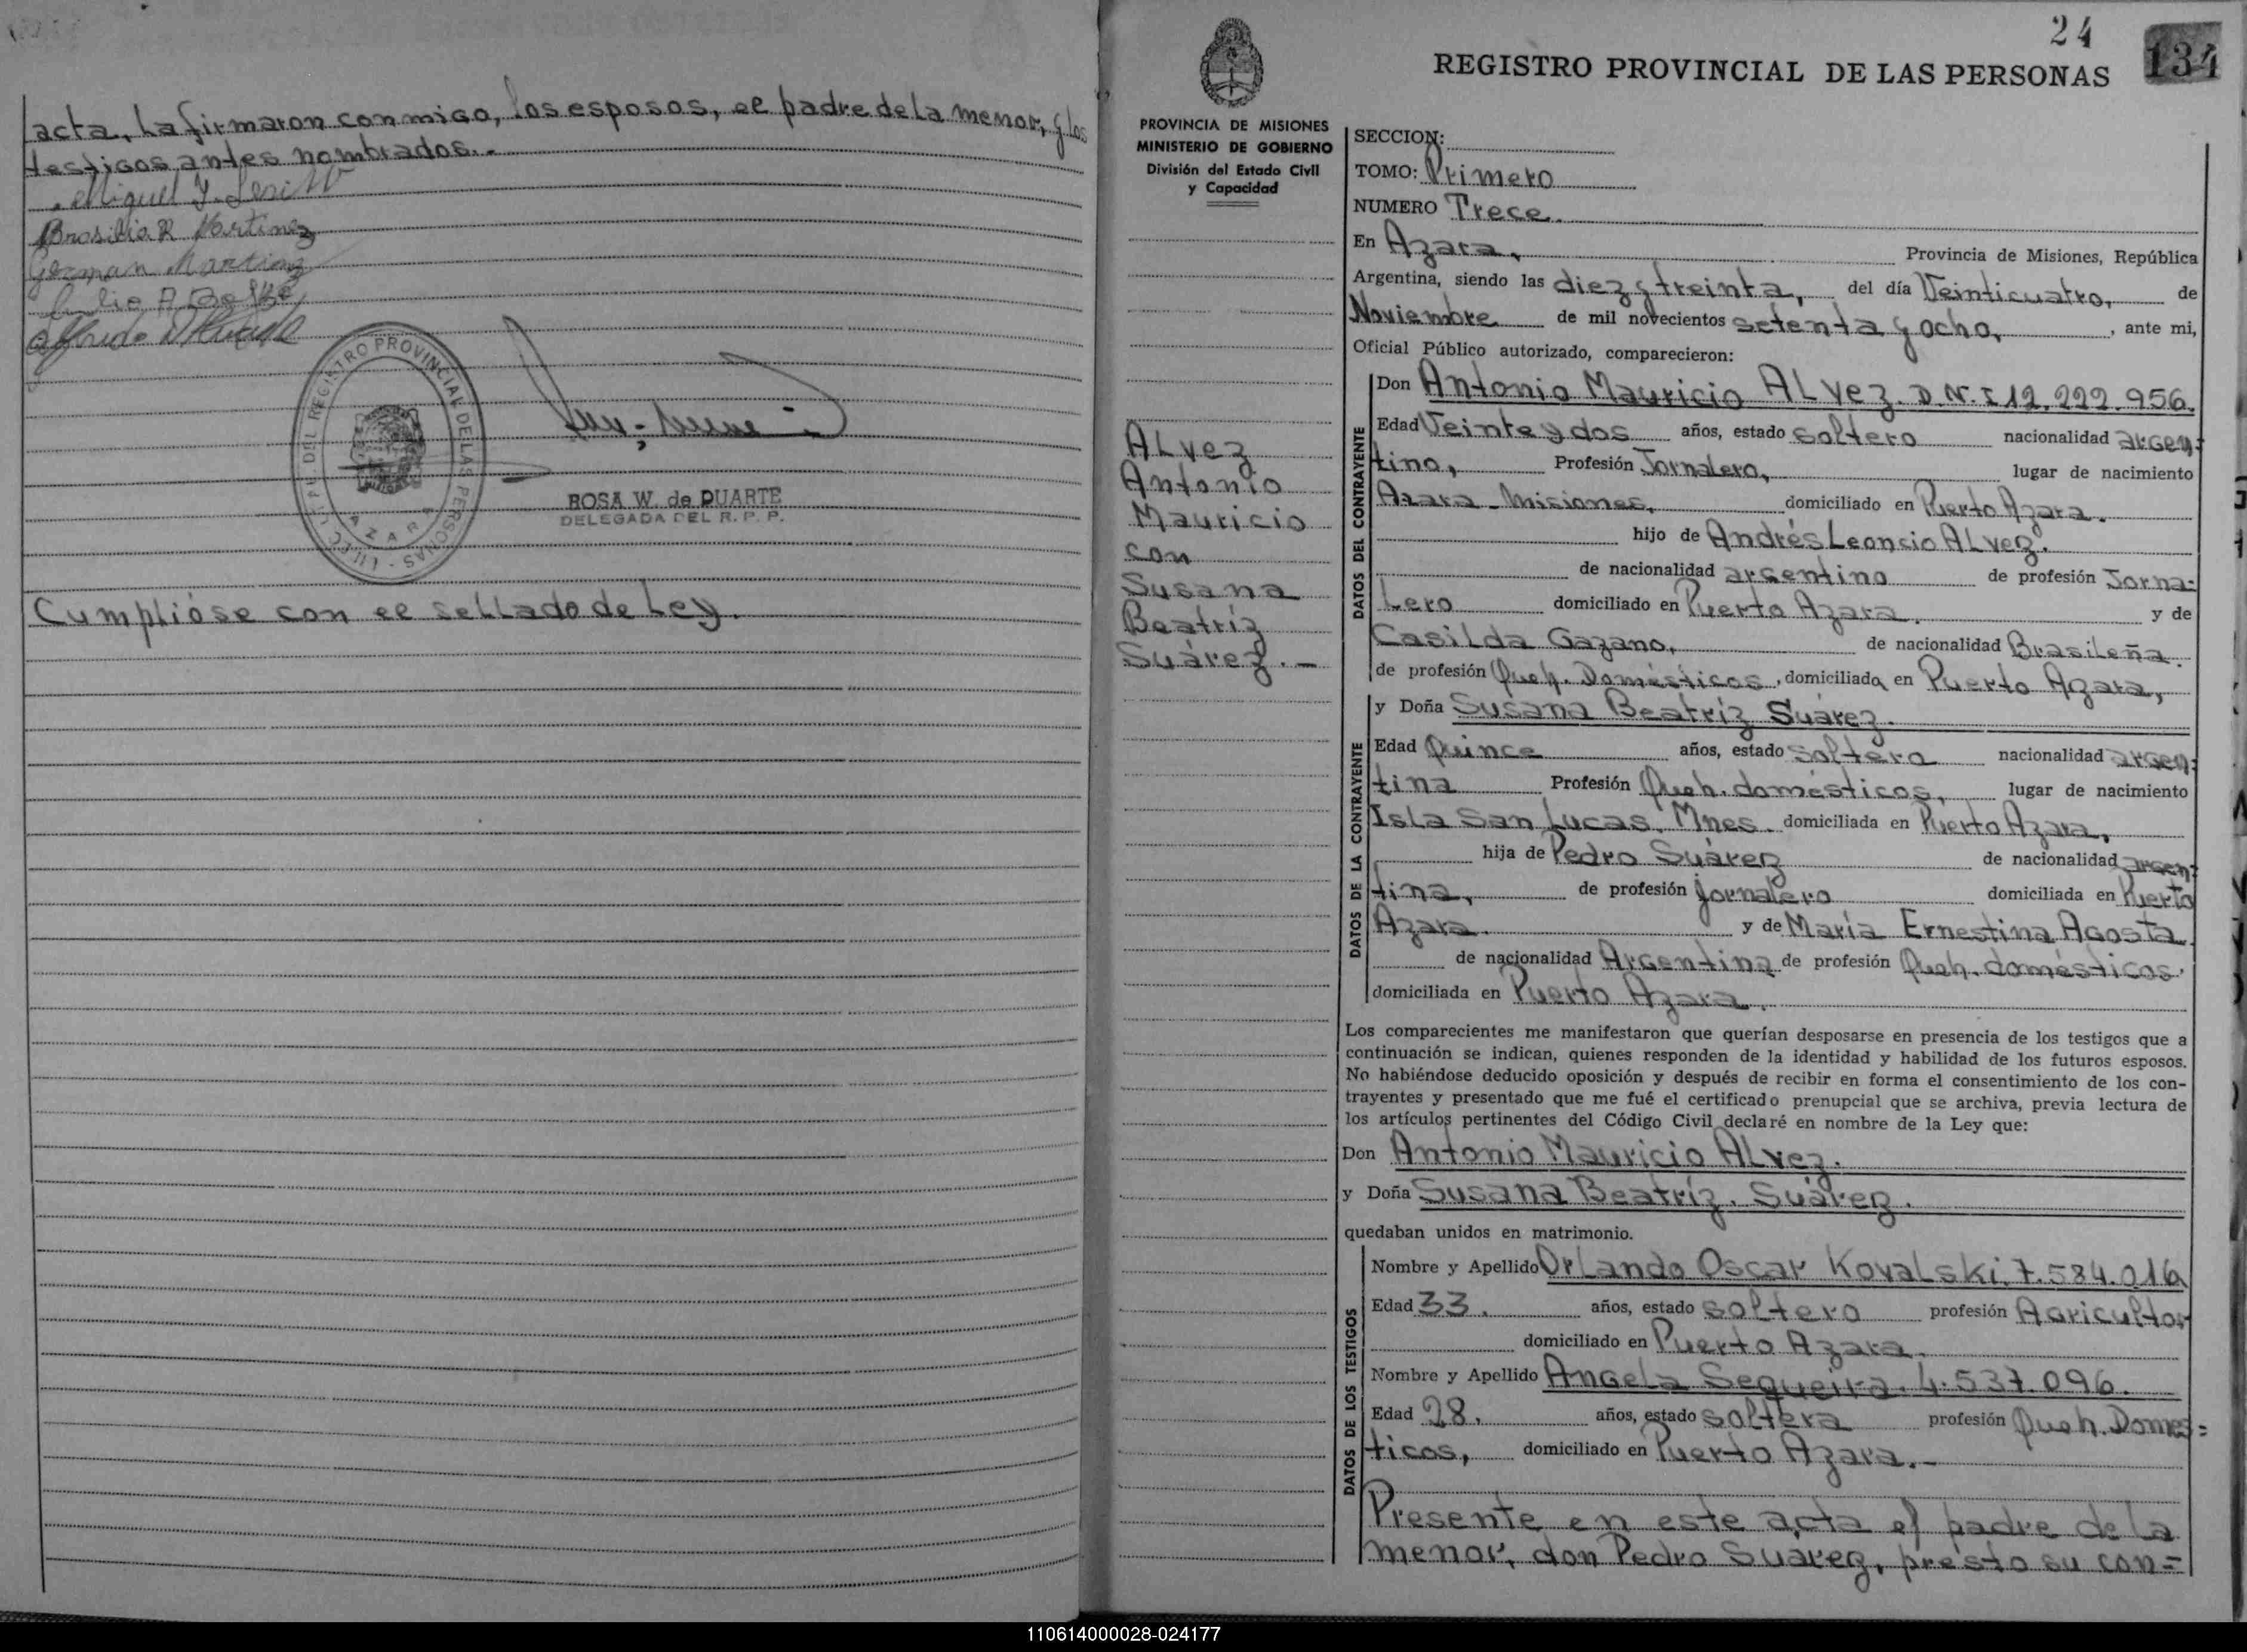 acta, la firmaron conmigo, los esposos, el padre de la menor, y los
testigos antes nombrados.-
Miguel
Brasilia R Martinez
German Martinez
Julio A
Alfredo
CIVIL DEL REGISTRO PROVINCIAL DE LAS PERSONAS
AZARA
ROSA W. de DUARTE
DELEGADA DEL R. P. P.
Cumplióse con el sellado de Ley.
24
134
REGISTRO PROVINCIAL DE LAS PERSONAS
PROVINCIA DE MISIONES
MINISTERIO DE GOBIERNO
División del Estado Civil
y Capacidad
ALvez
Antonio
Mauricio
con
Susana
Beatríz
Suárez.-
SECCION:
TOMO: Primero
NUMERO Trece.
En Azara, Provincia de Misiones, República
Argentina, siendo las diez y treinta, del día Veinticuatro, de
Noviembre de mil novecientos setenta y ocho, , ante mi,
Oficial Público autorizado, comparecieron:
DATOS DEL CONTRAYENTE
Don Antonio Mauricio ALvez. D.N.I 12.222.956.
Edad Veinte y dos años, estado soltero nacionalidad argen=
tino, Profesión Jornalero, lugar de nacimiento
Azara-Misiones, domiciliado en Puerto Azara.
hijo de Andrés Leoncio ALvez.
de nacionalidad argentino de profesión Jorna=
Lero domiciliado en Puerto Azara. y de
Casilda Gazano, de nacionalidad Brasileña.
de profesión Queh. Domésticos, domiciliada en Puerto Azara,
DATOS DE LA CONTRAYENTE
y Doña Susana Beatríz Suárez.
Edad Quince años, estado soltera nacionalidad argen=
tina Profesión Queh. domésticos, lugar de nacimiento
Isla San Lucas, Mnes. domiciliada en Puerto Azara,
hija de Pedro Suárez de nacionalidad argen=
tina, de profesión jornalero domiciliada en Puerto
Azara. y de María Ernestina Acosta.
de nacionalidad Argentina de profesión Queh. domésticos.
domiciliada en Puerto Azara.
Los comparecientes me manifestaron que querían desposarse en presencia de los testigos que a
continuación se indican, quienes responden de la identidad y habilidad de los futuros esposos.
No habiéndose deducido oposición y después de recibir en forma el consentimiento de los con-
trayentes y presentado que me fué el certificado prenupcial que se archiva, previa lectura de
los artículos pertinentes del Código Civil declaré en nombre de la Ley que:
Don Antonio Mauricio ALvez.
y Doña Susana Beatríz. Suárez.
quedaban unidos en matrimonio.
DATOS DE LOS TESTIGOS
Nombre y Apellido Orlando Oscar Kovalski. 7.584.016
Edad 33. años, estado soltero profesión Agricultor
domiciliado en Puerto Azara.
Nombre y Apellido Angela Sequeira. 4.537.096.
Edad 28. años, estado soltera profesión Queh. Domes=
ticos, domiciliado en Puerto Azara.-
Presente en este acta el padre de la
menor, don Pedro Suárez, presto su con=
110614000028-024177